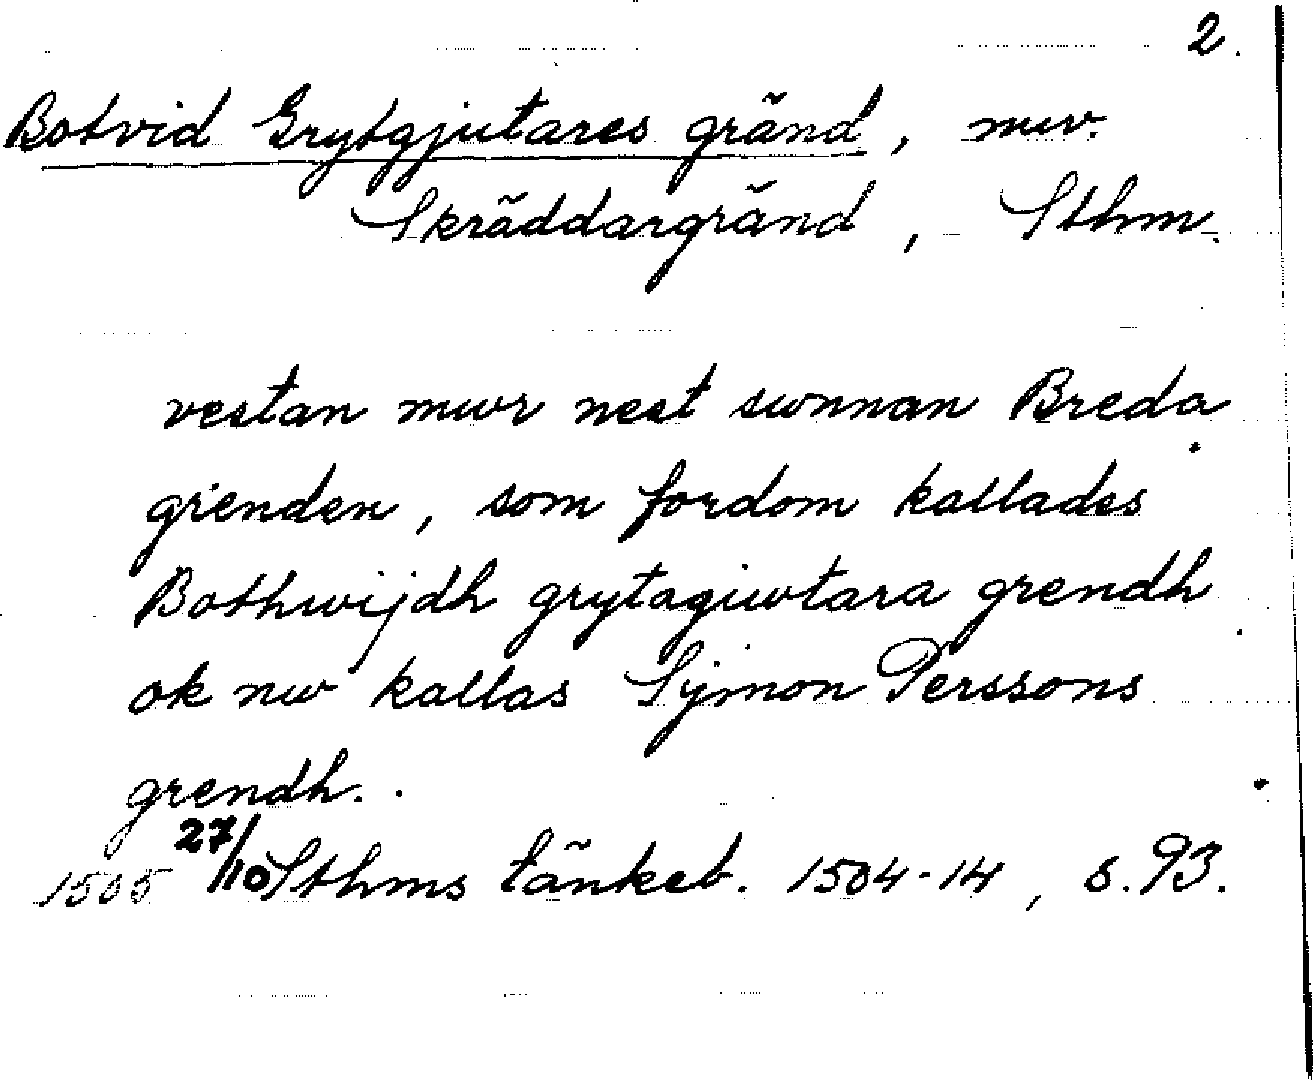 2.
Botvid Grytgjutares gränd, nuv.
Skräddargränd, Sthm.
vestan mwr nest swnnan Breda
grenden, som fordom kallades
Bothwijdh grytagiwtara grendh
ok nw kallas Sÿmon Perssons
grendh.
1505 27/10 Sthms tänkeb. 1504-14, s. 93.